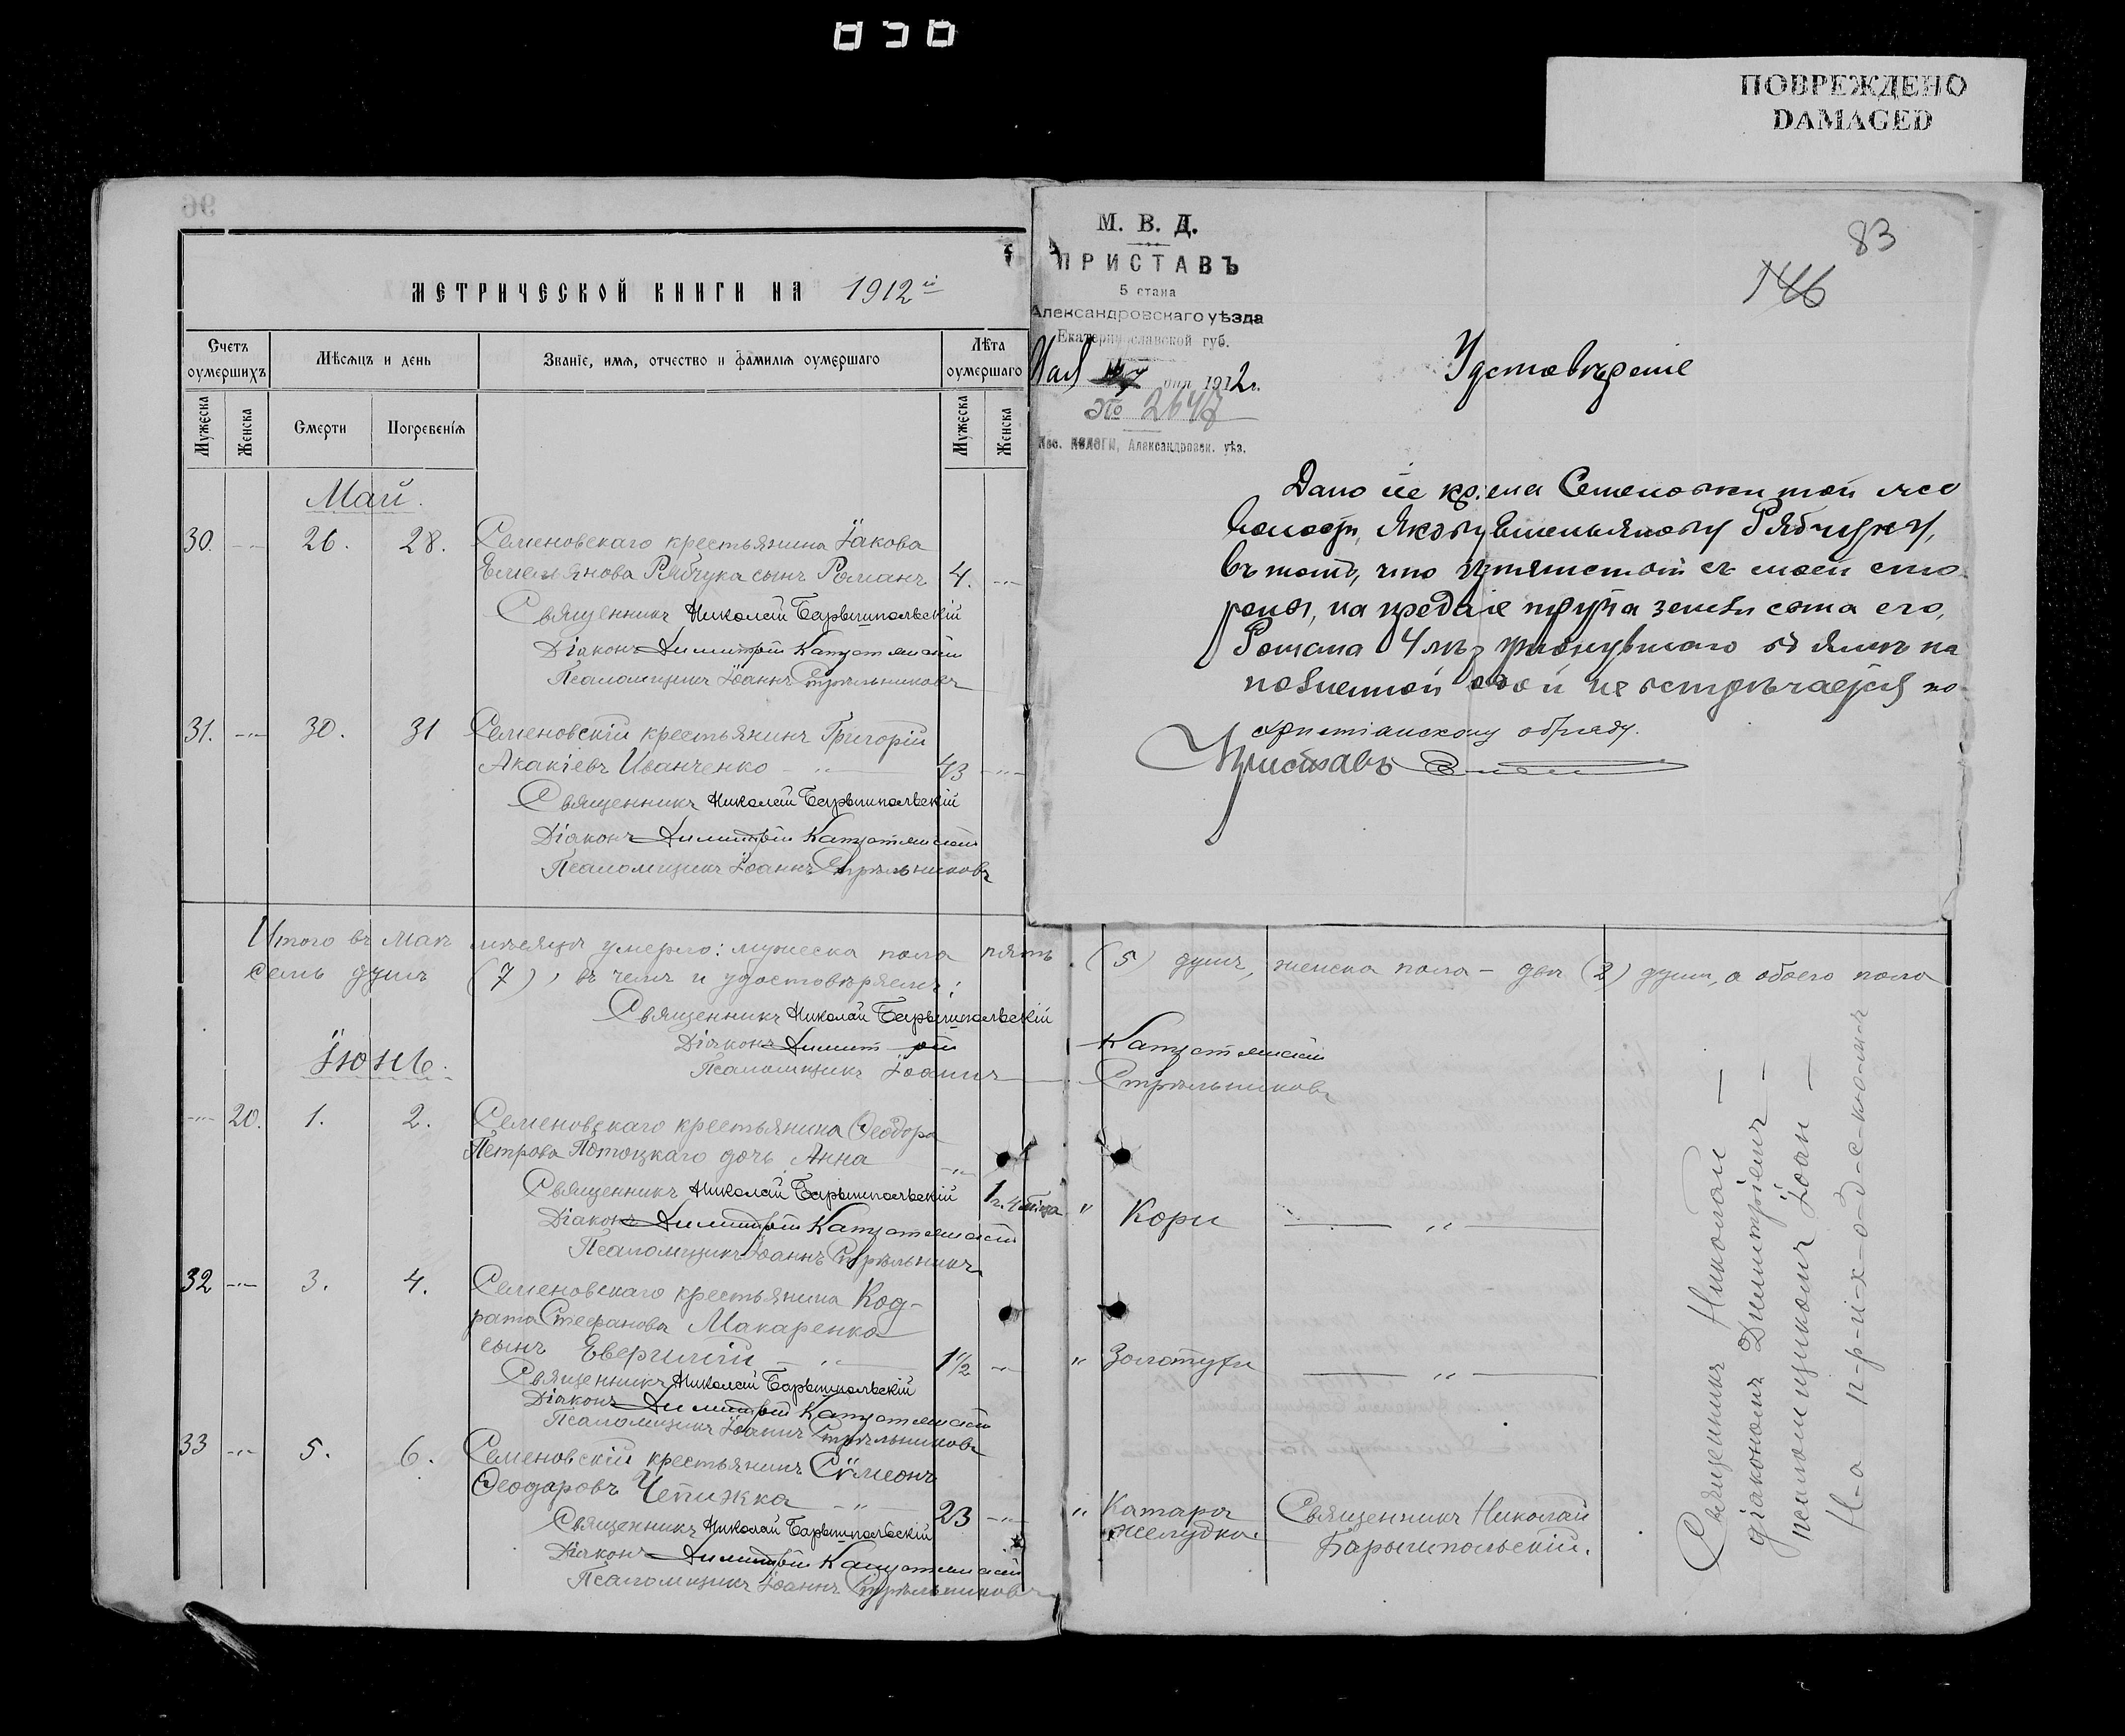 ПОВРЕЖДЕНО
DAMAGED
96
МЕТРИЧЕСКОЙ КНИГИ НА 1912й
Счетъ оумершихъ
Мѣсяцъ и день
Званіе, имя, отчество и фамилія оумершаго
Лѣта оумершаго
Мужеска
Женска
Смерти
Погребенія
Мужеска
Женска
Май.
30. 26. 28. Семеновскаго крестьянина Іакова
Емельянова Рябчука сынъ Романъ 4.
Священникъ Николай Барышпольскій
Діаконъ Димитрій
Псаломщикъ Іоаннъ Стрѣльниковъ
31. 30. 31 Семеновскій крестьянинъ Григорій
Акакіевъ Иванченко 43
Священникъ Николай Барышпольскій
Діаконъ Димитрій
Псаломщикъ Іоаннъ Стрѣльниковъ
Итого въ маѣ мѣсяцѣ умерло: мужеска пола пять (5) душъ, женска пола - двѣ (2) души, а обоего пола
семь душъ (7), въ чемъ и удостовѣряемъ:
Священникъ Николай Барышпольскій
Діаконъ Димитрій
Псаломщикъ Іоаннъ Стрѣльниковъ
Іюнь.
20. 1. 2. Семеновскаго крестьянина Ѳеодора
Петрова Потоцкаго дочь Анна
1 г. 4 мѣсяца " Кори "
Священникъ Николай Барышпольскій
Діаконъ Димитрій
Псаломщикъ Іоаннъ Стрѣльниковъ
32 3. 4. Семеновскаго крестьянина Код-
рата Стефанова Макаренка
сынъ 1½ " Золотухи "
Священникъ Николай Барышпольскій
Діаконъ Димитрій
Псаломщикъ Іоаннъ Стрѣльниковъ
33 5. 6. Семеновскій крестьянинъ Сѵмеонъ
Ѳеодоровъ Чепижка 23 " Катара желудка.
Священникъ Николай Барышпольскій
Діаконъ Димитрій
Псаломщикъ Іоаннъ Стрѣльниковъ
Священникъ Николай
Барышпольскій.
Священникъ Николай —
діакономъ Димитріемъ —
псаломщикомъ Іоан —
Н-а п-р-и-х-о-д-с-к-о-м-ъ
М. В. Д.
ПРИСТАВЪ
5 стана
Александровскаго уѣзда
Екатеринославской губ.
Мая 27 дня 1912 г.
№ 2647
Александровск. уѣз.
83
146
Удостовѣреніе
Дано сіе кр-ну Семеновки той же
волости, Якову Емельянову Рябчуку,
въ томъ, что препятствій съ моей сто-
роны, на преданіе трупа земли сына его,
Романа 4 лѣтъ, утонувшаго въ ямѣ на-
полненной водой не встрѣчается по
христіанскому обряду.
Приставъ